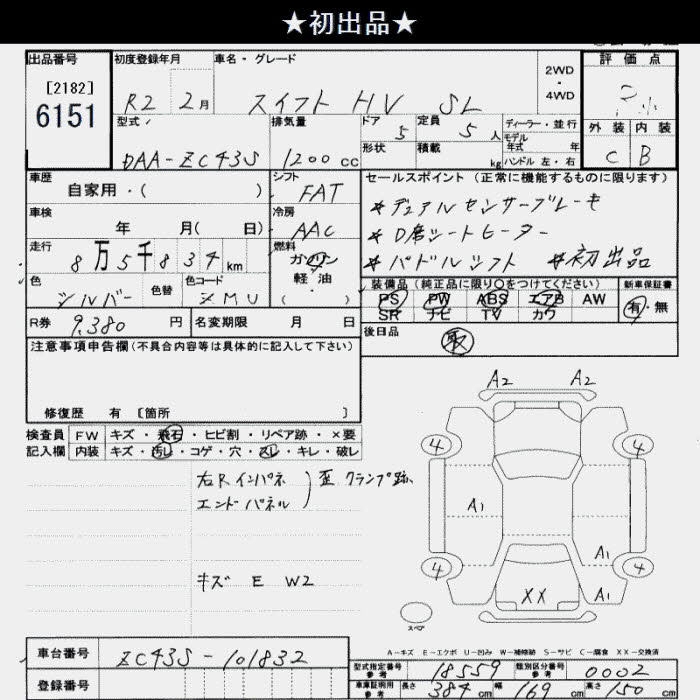 ★初出品★
出品番号
[2182]
6151
初度登録年月
R2 2月
車名・グレード
スイフト HV SL
2WD
・
4WD
評価点
外装 内装
C B
型式
DAA-ZC43S
排気量
1200 cc
ドア 5
形状
定員 5 人
積載 kg
ディーラー・並行
モデル年式 年
ハンドル 左・右
車歴
自家用・( )
シフト
FAT
車検
年 月( 日)
冷房
AAC
走行
8万5千834km
燃料
ガソリン
軽油
( )
色
シルバー
色替
色コード
ZMU
R券 9,380 円
名変期限 月 日
セールスポイント(正常に機能するものに限ります)
*デュアルセンサーブレーキ
*D席シートヒーター
*パドルシフト *初出品
装備品(純正品に限り○をつけてください)
PS PW ABS エアB AW
SR ナビ TV カワ
新車保証書
有・無
後日品
取
注意事項申告欄(不具合内容等は具体的に記入して下さい)
修復歴 有 [箇所 ]
検査員
記入欄
FW キズ・飛石・ヒビ割・リペア跡・×要
内装 キズ・汚レ・コゲ・穴・スレ・キレ・破レ
右Rインパネ
エンドパネル
歪 クランプ跡
キズ E W2
A2 A2
4 4
A1
A1
4 4
XX A1
スペア
A-キズ E-エクボ U-凹み W-補修跡 S-サビ C-腐食 XX-交換済
車台番号 ZC43S-101832
登録番号
型式指定番号
参考
18559
類別区分番号
参考
0002
車庫証明用
参考
長さ 384 cm 幅 169 cm 高さ 150 cm